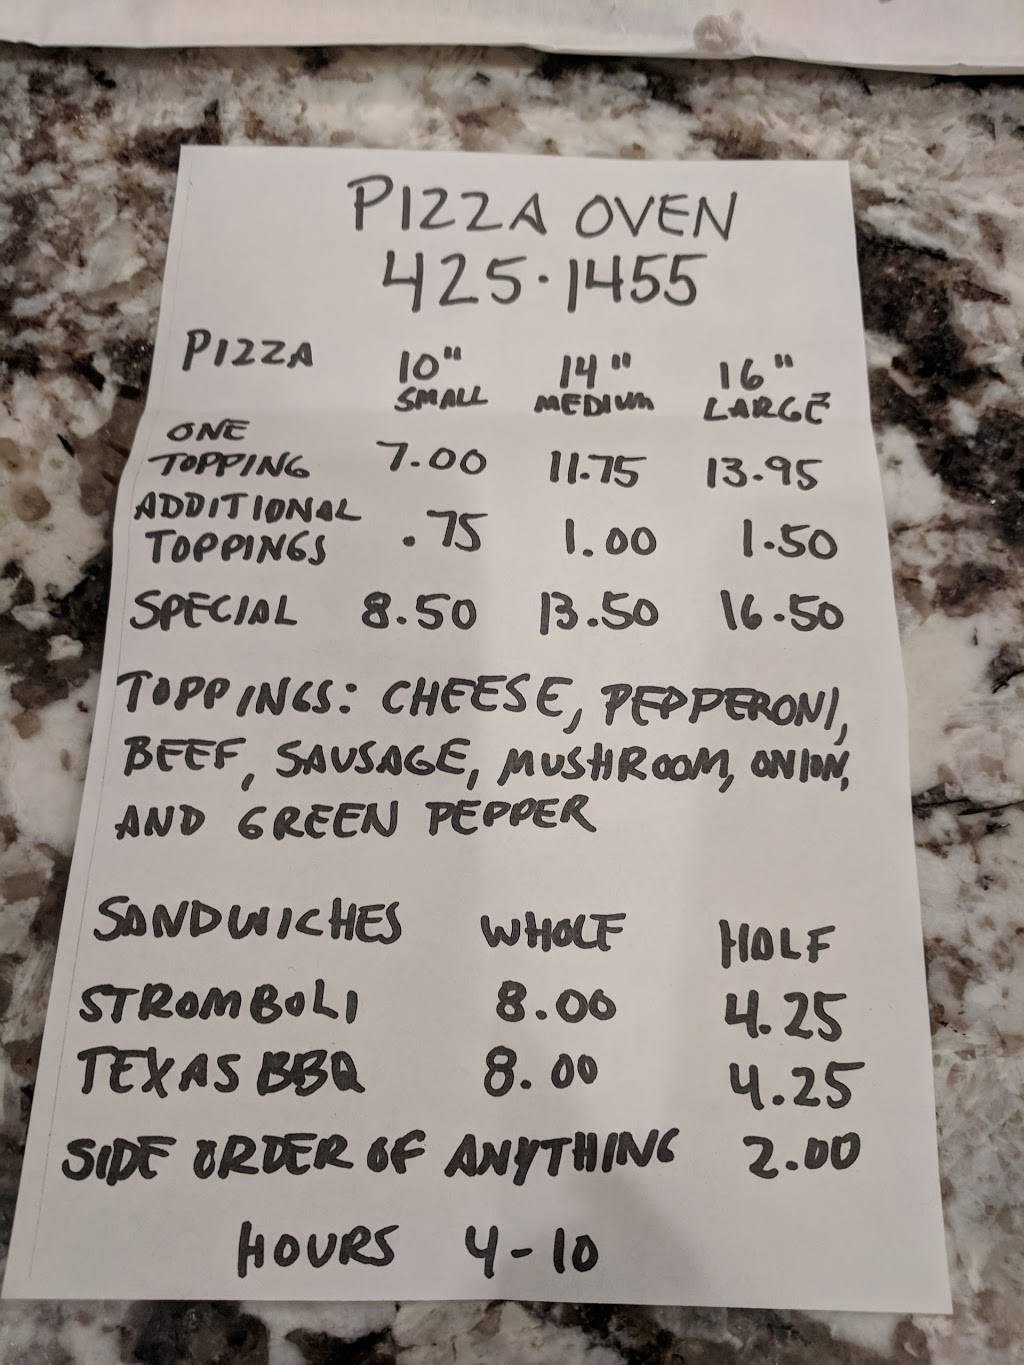 PIZZA OVEN
425·1455
PIZZA 10" 14" 16"
SMALL MEDIUM LARGE
ONE
TOPPING 7.00 11.75 13.95
ADDITIONAL
TOPPINGS .75 1.00 1.50
SPECIAL 8.50 13.50 16.50
TOPPINGS: CHEESE, PEPPERONI,
BEEF, SAUSAGE, MUSHROOM, ONION,
AND GREEN PEPPER
SANDWICHES WHOLE HALF
STROMBOLI 8.00 4.25
TEXAS BBQ 8.00 4.25
SIDE ORDER OF ANYTHING 2.00
HOURS 4-10